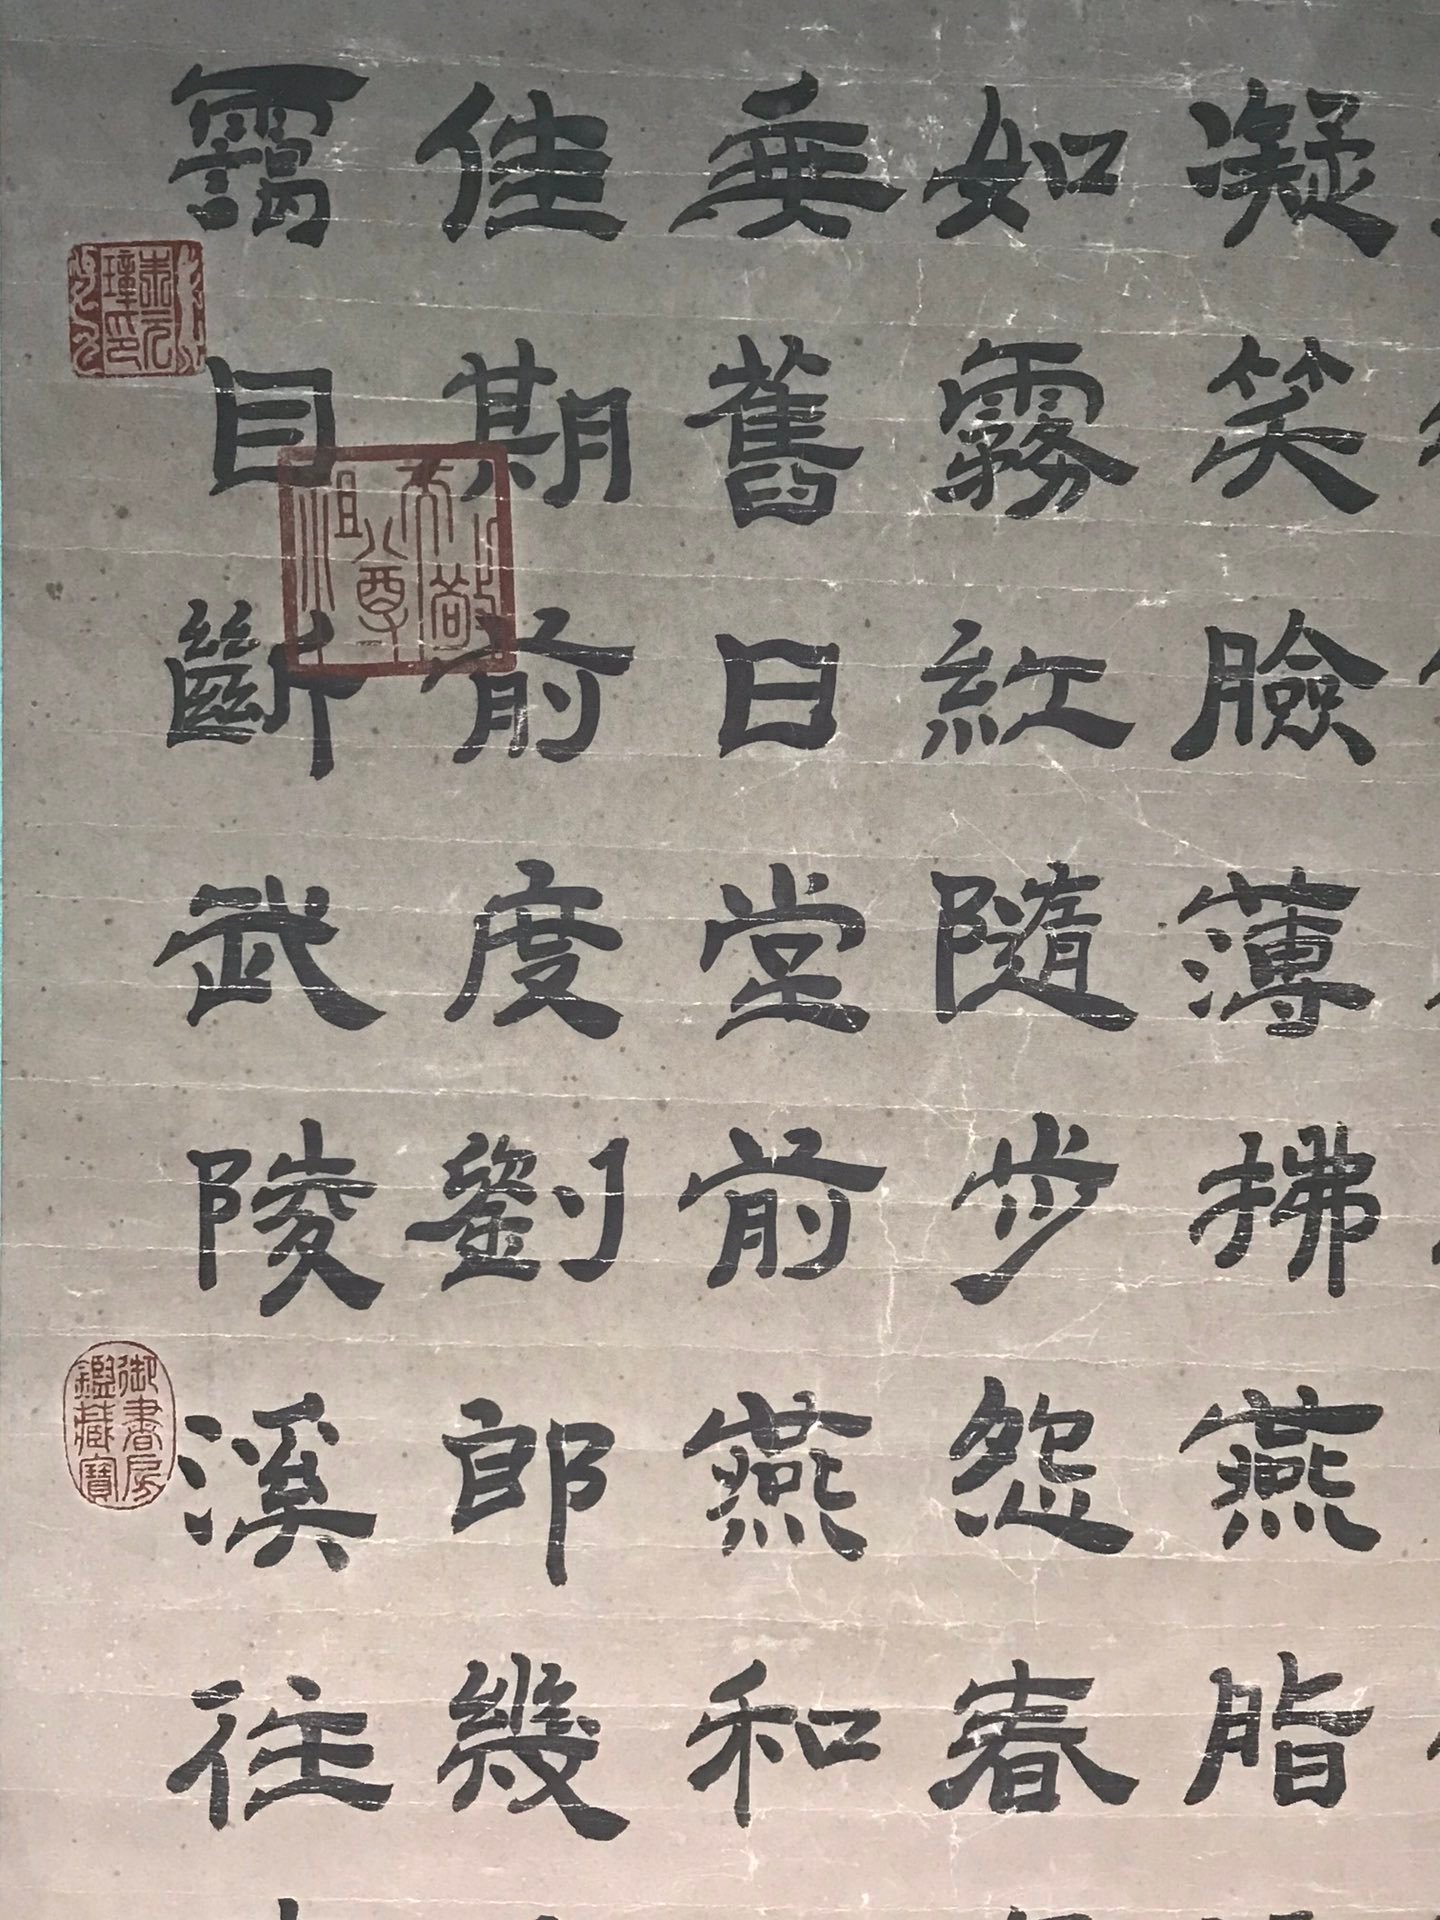 凝笑臉薄拂燕脂
如霧紅隨步怨春
垂舊日堂前燕和
佳期前度劉郎幾
靄目斷武陵溪往
朱元璋氏
御書房鑑藏寶